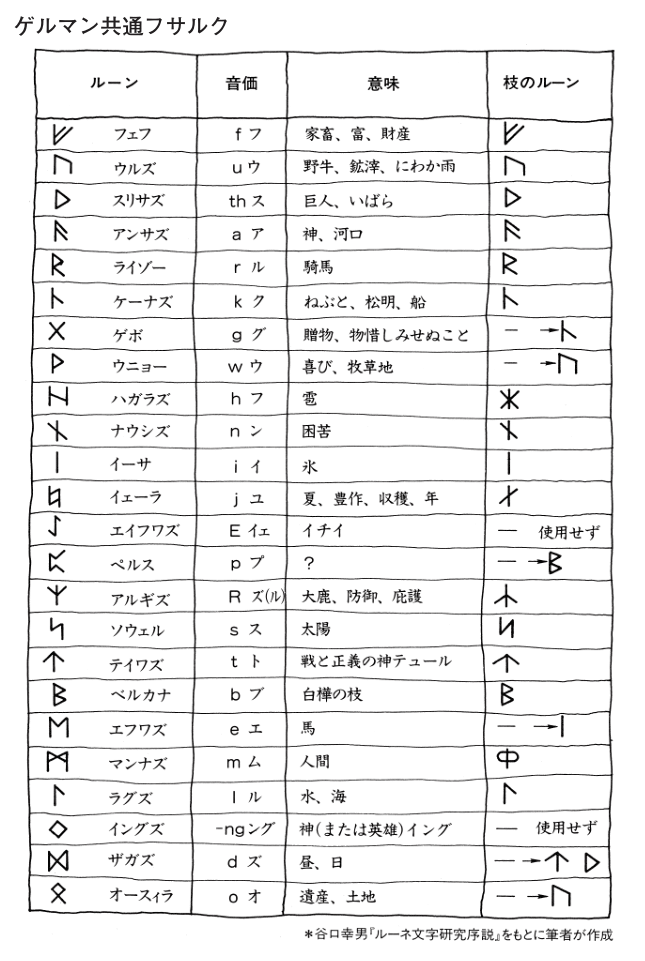 ゲルマン共通フサルク
ルーン 音価 意味 枝のルーン
ᚠ フェフ f フ 家畜、富、財産 ᚠ
ᚢ ウルズ u ウ 野牛、鉱滓、にわか雨 ᚢ
ᚦ スリサズ th ス 巨人、いばら ᚦ
ᚨ アンサズ a ア 神、河口 ᚨ
ᚱ ライゾー r ル 騎馬 ᚱ
ᚲ ケーナズ k ク ねぶと、松明、船 ᚲ
ᚷ ゲボ g グ 贈物、物惜しみせぬこと — →ᚲ
ᚹ ウニョー w ウ 喜び、牧草地 — →ᚢ
ᚺ ハガラズ h フ 雹 ᚼ
ᚾ ナウシズ n ン 困苦 ᚾ
ᛁ イーサ i イ 氷 ᛁ
ᛃ イェーラ j ユ 夏、豊作、収穫、年 ᛅ
ᛇ エイフワズ E イェ イチイ — 使用せず
ᛈ ペルス p プ ? — →ᛒ
ᛉ アルギズ R ズ(ル) 大鹿、防御、庇護 ᛦ
ᛋ ソウェル s ス 太陽 ᛋ
ᛏ テイワズ t ト 戦と正義の神テュール ᛏ
ᛒ ベルカナ b ブ 白樺の枝 ᛒ
ᛖ エフワズ e エ 馬 — →ᛁ
ᛗ マンナズ m ム 人間 ᛘ
ᛚ ラグズ l ル 水、海 ᛚ
ᛜ イングズ -ng ング 神(または英雄)イング — 使用せず
ᛞ ザガズ d ズ 昼、日 — →ᛏ ᚦ
ᛟ オースィラ o オ 遺産、土地 — →ᚢ
*谷口幸男『ルーネ文字研究序説』をもとに筆者が作成